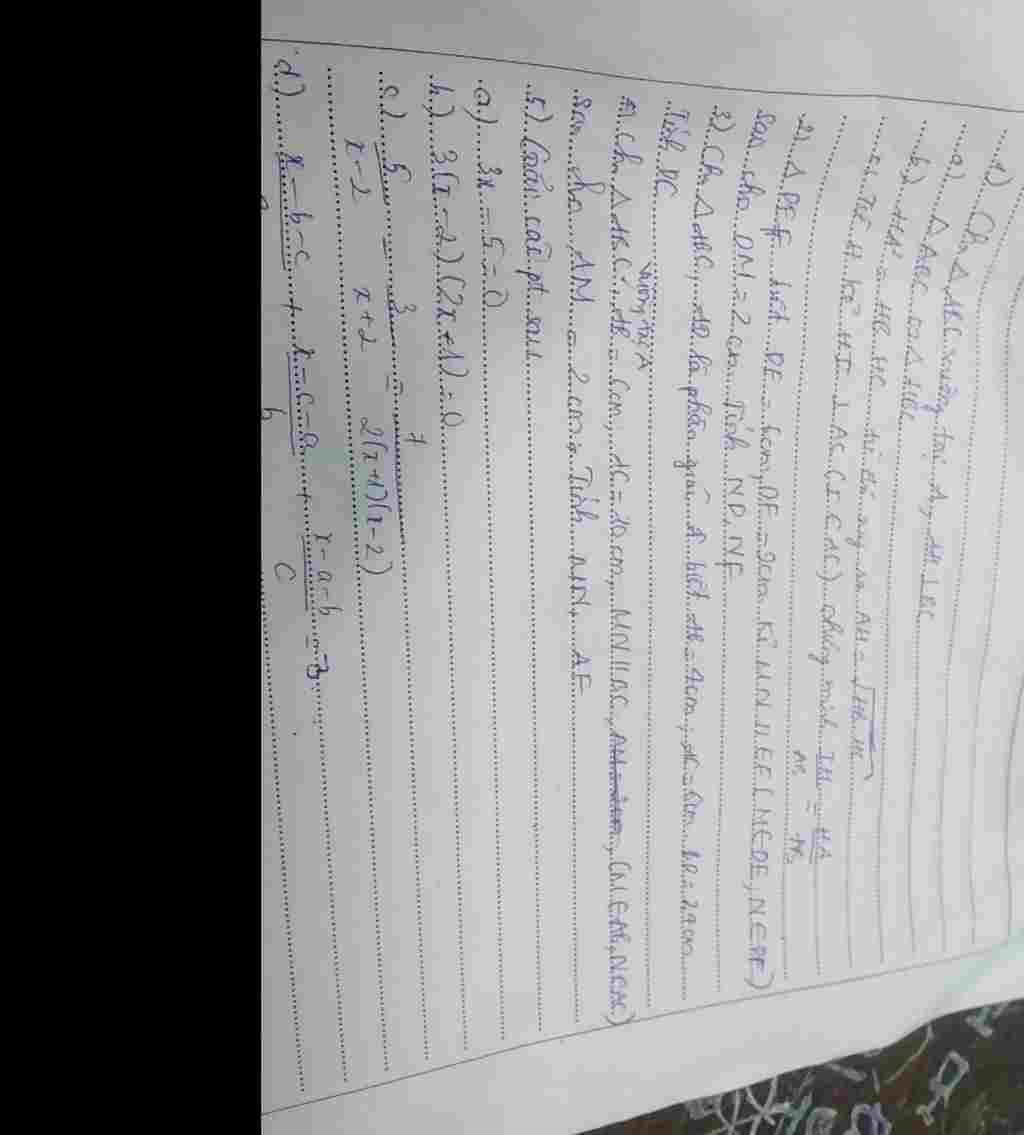 1) Cho Δ ABC vuông tại A, AH ⊥ BC
a) Δ ABC ∽ Δ HBA
b) HA² = HB.HC từ đó suy ra AH = √HB.HC
c) Từ H kẻ HI ⊥ AC (I ∈ AC) chứng minh IH/AB = HA/BC
2) Δ DEF biết DE = 6cm, DF = 9cm kẻ MN // EF (M ∈ DE, N ∈ DF)
sao cho DM = 2cm. Tính ND, NF
3) Cho Δ ABC, AD là phân giác A biết AB = 4cm, AC = 6cm
Tính DC
4) Cho Δ ABC vuông tại A, AB = 6cm, AC = 10cm, MN // BC, (M ∈ AB, N ∈ AC)
sao cho AM = 2cm, Tính AN,
5) Giải các pt sau
a) 3x - 5 = 0
b) 3(x - 2) (2x + 1) = 0
c) 5/(x - 2) - 3/(x + 2) = 7/(2(x+1)(x-2))
d) (x - b - c) + (x - c - a)/b + (x - a - b)/c = 3